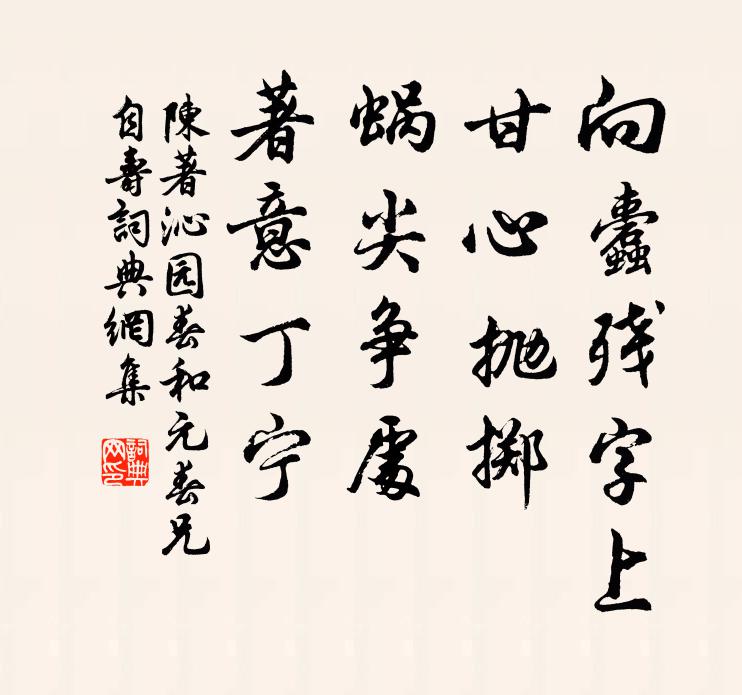 向蠹残字上
甘心抛掷
蜗尖争處
著意丁宁
陳著沁园春和元春兄
自壽詞典網集
詞典
网印